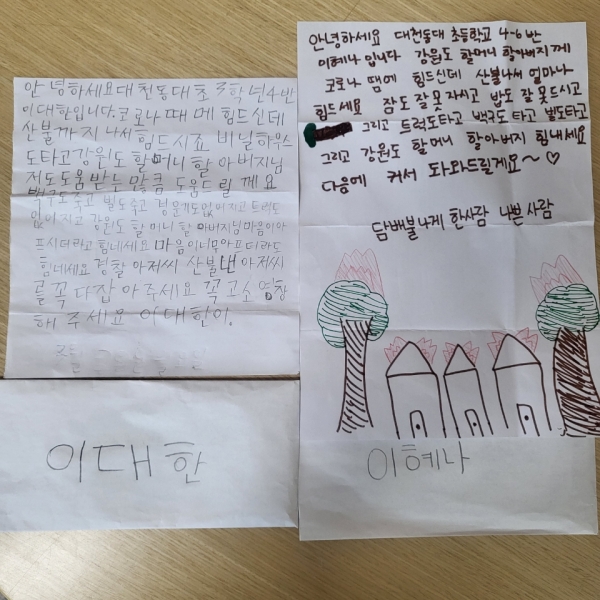 안녕하세요대천동대초3학년4반
이대한입니다.코로나때메힘드신데
산불까지나서힘드시죠 비닐하우스
도타고강원도할머니할아버지님
저도도움받는만큼도움드릴께요
백구도죽고벌도죽고경운기도없어지고트럭도
없어지고강원도할머니할아버지님마음이아
프시더라고힘네세요마음이너무아프더라도
힘네세요경찰아저씨산불낸아저씨
를꼭다잡아주세요꼭고소영창
해주세요이대한이.
이대한
안녕하세요 대천동대 초등학교 4-6반
이혜나 입니다 강원도 할머니 할아버지께
코로나 땜에 힘드신데 산불나서 얼마나
힘드세요 잠도 잘못자시고 밥도 잘못드시고
그리고 트럭도타고 백구도 타고 벌도타고
그리고 강원도 할머니 할아버지 힘내세요
다음에 커서 도와드릴게요~♡
담배불나게 한사람 나쁜사람
이혜나